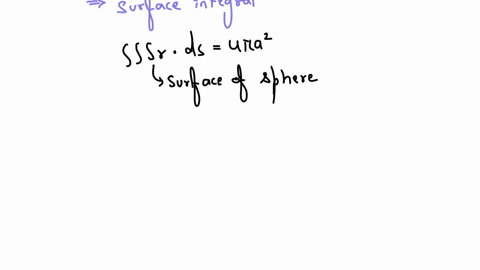 ⇒ Surface integral
∫∫∫r · ds = 4πa²
↳ Surface of sphere